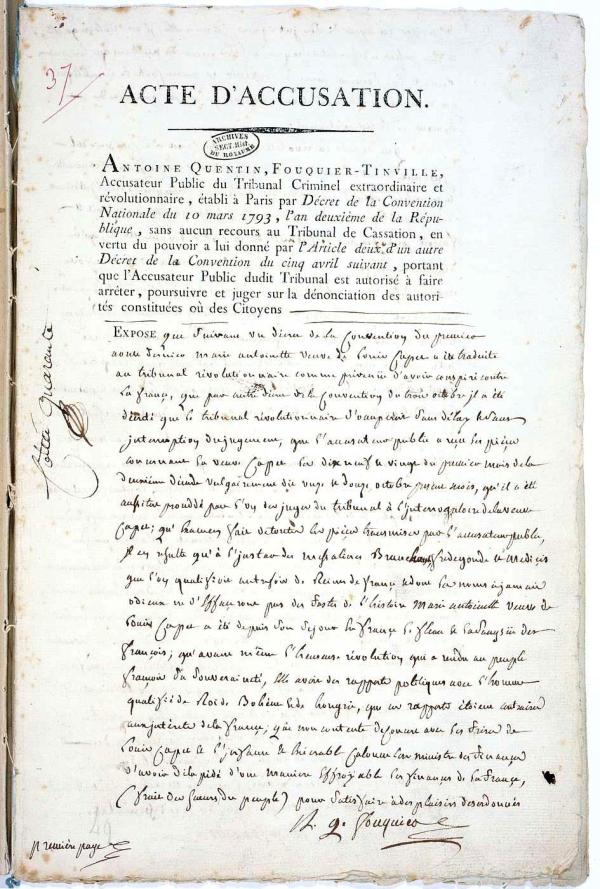 37
ACTE D'ACCUSATION.
ARCHIVES
SECT. HIST.
DU ROYAUME
ANTOINE QUENTIN, FOUQUIER-TINVILLE,
Accusateur Public du Tribunal Criminel extraordinaire et
révolutionnaire, établi à Paris par Décret de la Convention
Nationale du 10 mars 1793, l'an deuxième de la Répu-
blique, sans aucun recours au Tribunal de Cassation, en
vertu du pouvoir a lui donné par l'Article deux d'un autre
Décret de la Convention du cinq avril suivant, portant
que l'Accusateur Public dudit Tribunal est autorisé à faire
arrêter, poursuivre et juger sur la dénonciation des autori-
tés constituées où des Citoyens
EXPOSE que suivant un décret de la Convention du premier
aoust dernier marie antoinette veuve de Louis Capet a été traduite
au tribunal révolutionnaire comme prévenüe d'avoir conspiré contre
la france, que par autre décret de la Convention du trois octobre il a été
décidé que le tribunal révolutionnaire s'occuperoit sans délay et sans
interruption du jugement, que l'accusateur public a reçu les pièces
concernant la veuve Capet les dix neuf et vingt du premier mois de la
deuxième décade vulgairement dits onze et douze octobre présent mois, qu'il a été
aussitôt procédé par l'un des juges du tribunal à l'interrogatoire de la veuve
Capet; qu'examen fait de toutes les pièces transmises par l'accusateur public,
il en résulte qu'à l'instar des messalines Brunehaut fredegonde et Medicis
que l'on qualifioit autrefois de Reines de france et dont les noms à jamais
odieux ne s'effaceront pas des fastes de l'histoire marie antoinette veuve de
Louis Capet a été depuis son séjour en france le fleau et la sangsüe des
françois; qu'avant même l'heureuse révolution qui a rendu au peuple
françois sa souveraineté, elle avoit des rapports politiques avec l'homme
qualifié de Roi de Bohême et de hongrie, que ces rapports étoient contraires
aux intérêts de la france; que non contente de concert avec les freres de
Louis Capet et l'infame et exécrable Calonne lors ministre des finances
d'avoir dilapidé d'une maniere effroyable les finances de la france,
(fruit des sueurs du peuple) pour satisfaire à des plaisirs desordonnés
A. Q. Fouquier
Cotté quarante
premiere page